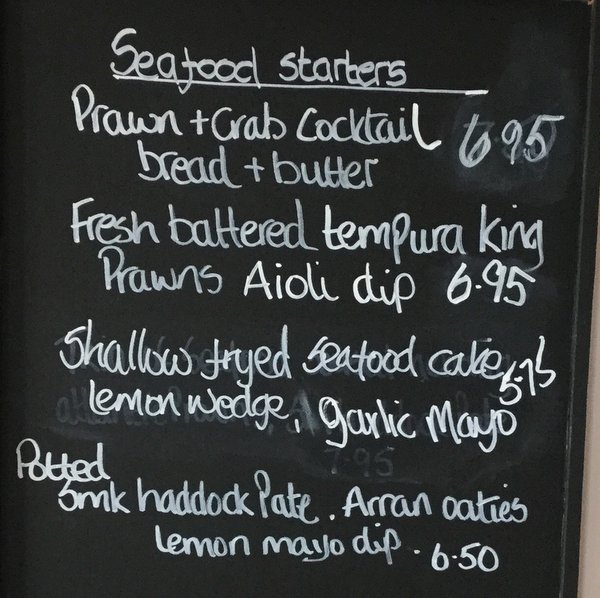 Seafood starters
Prawn + Crab Cocktail 6.95
bread + butter
Fresh battered tempura king
Prawns Aioli dip 6.95
Shallow fryed seafood cake 5.75
lemon wedge, Garlic Mayo
Potted
Smk haddock Pate. Arran oaties
lemon mayo dip. 6.50